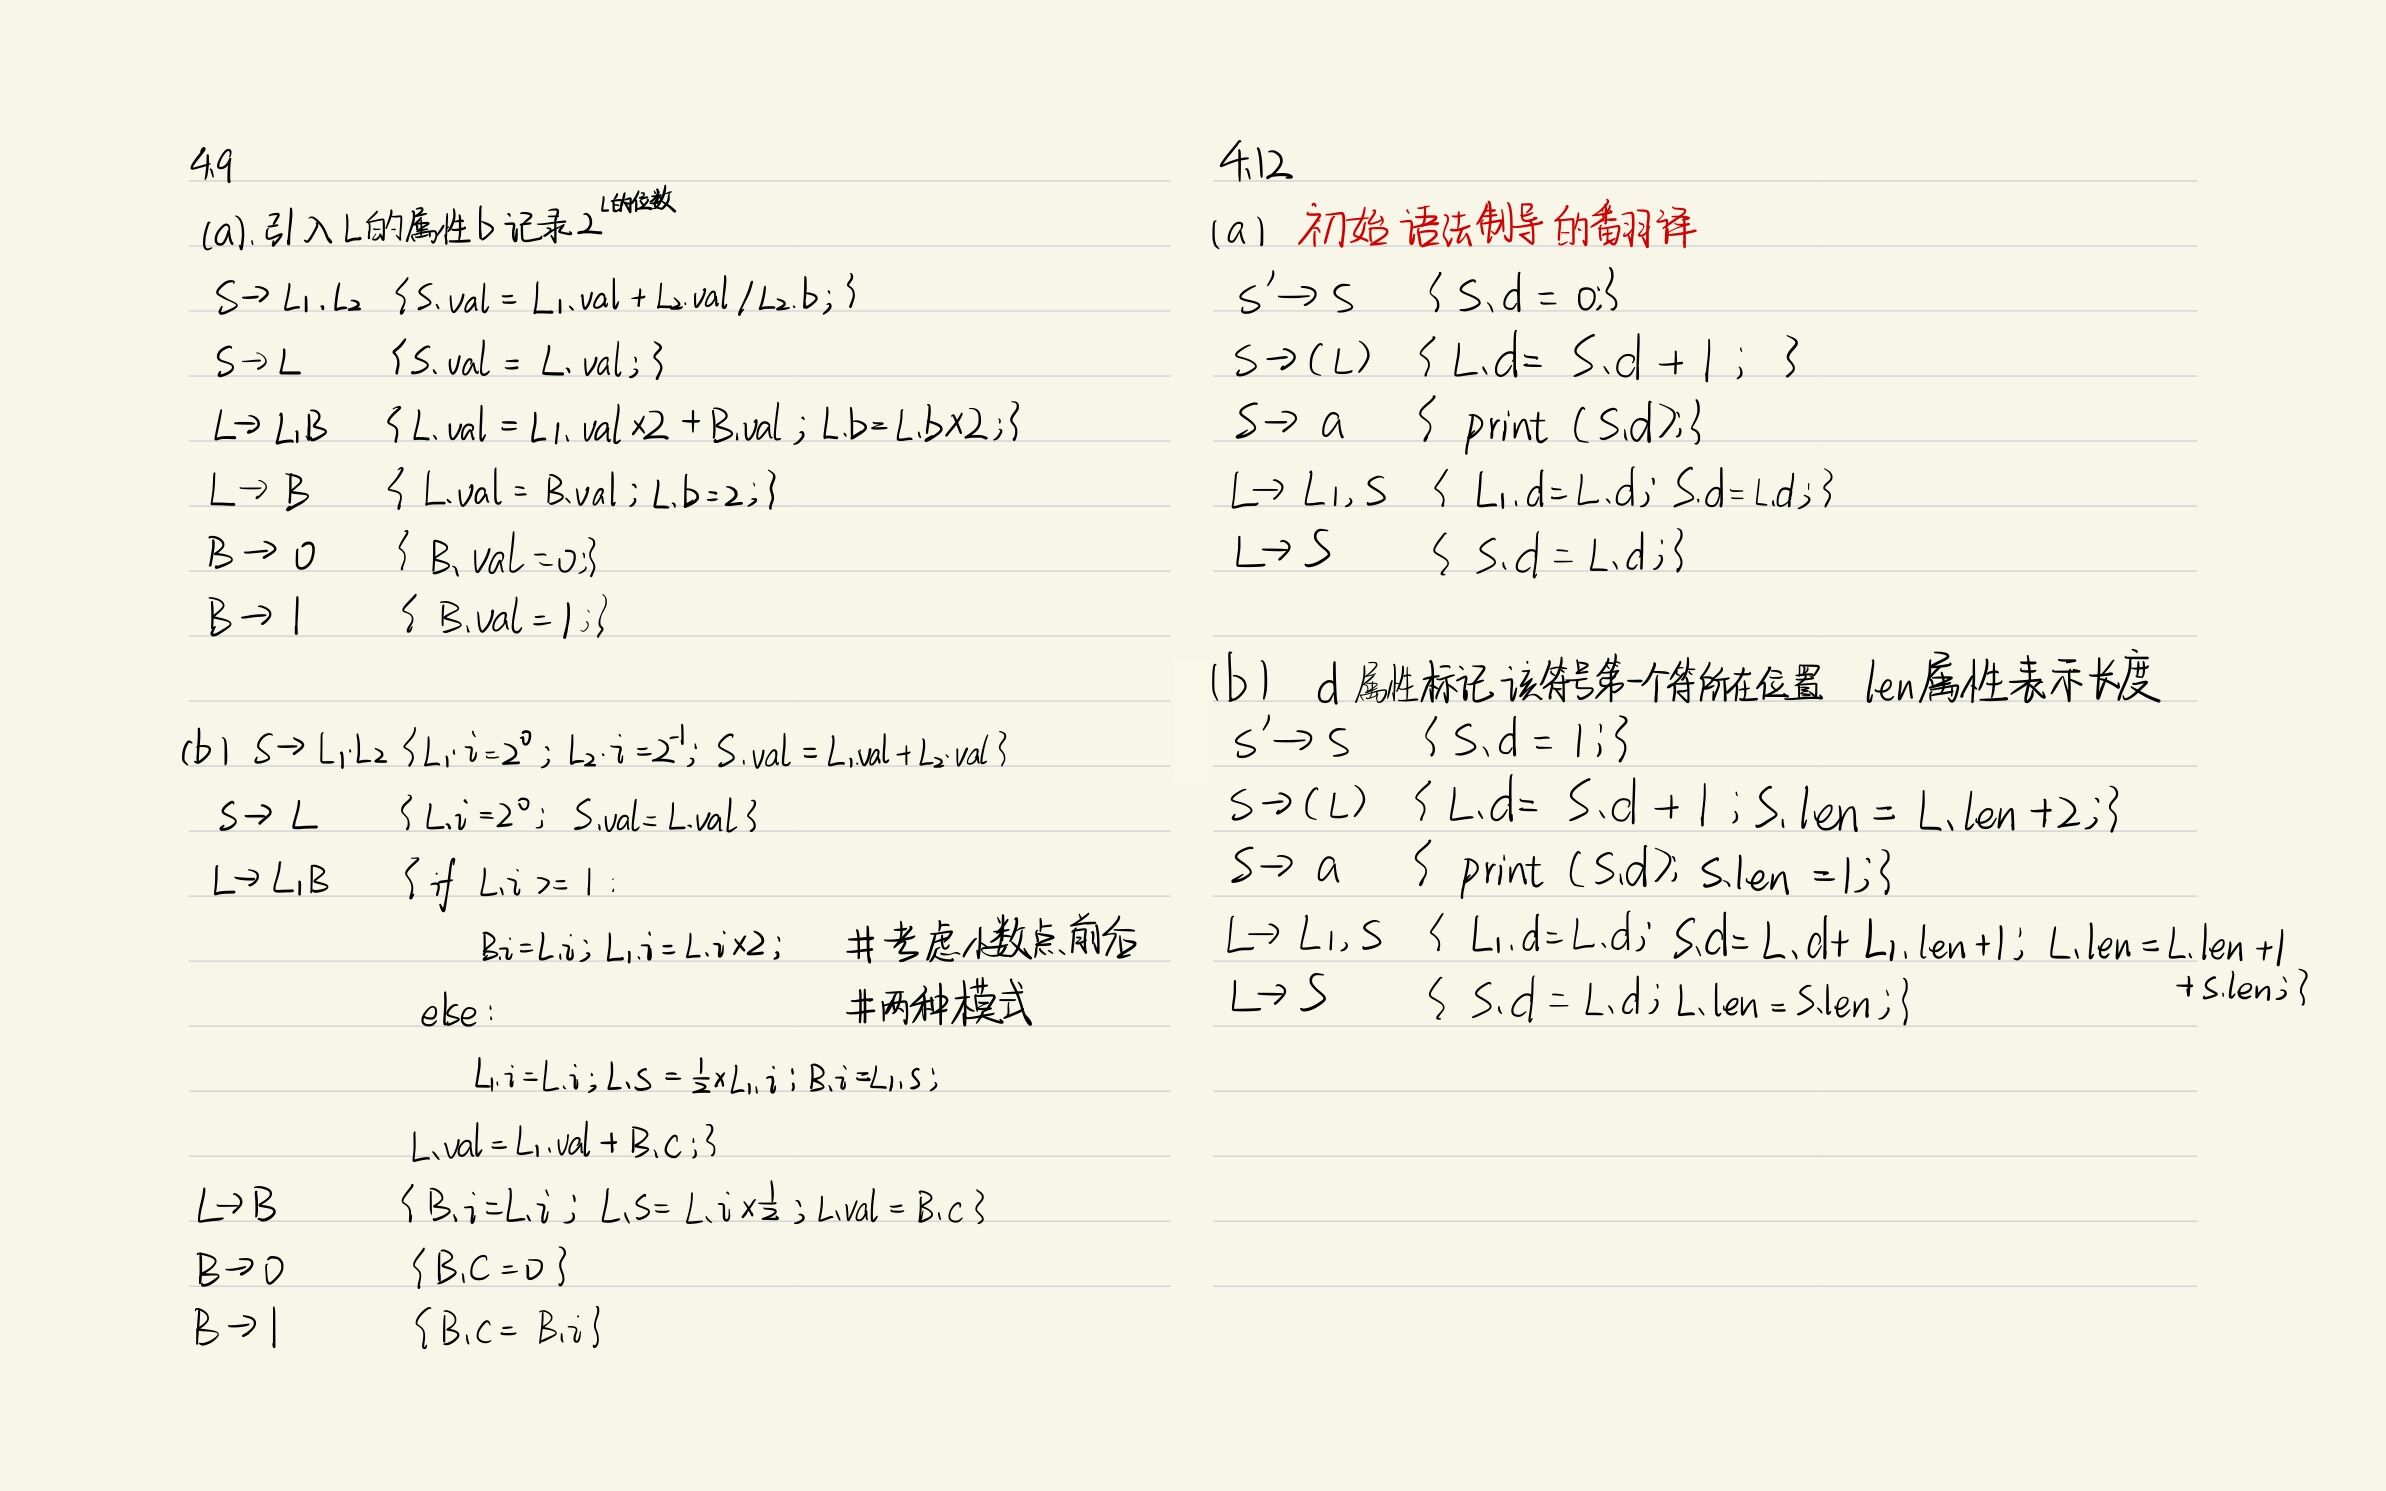 4.9
(a). 引入L的属性b记录2^L的位数
S→L₁.L₂ {S.val = L₁.val + L₂.val / L₂.b;}
S→L {S.val = L.val;}
L→L₁B {L.val = L₁.val×2 + B.val; L.b=L.b×2;}
L→B {L.val = B.val; L.b=2;}
B→0 {B.val=0;}
B→1 {B.val=1;}
(b) S→L₁.L₂ {L₁.i=2⁰; L₂.i=2⁻¹; S.val = L₁.val+L₂.val}
S→L {L.i=2⁰; S.val=L.val}
L→L₁B {if L.i >= 1:
B.i=L.i; L₁.i=L.i×2; #考虑小数点前后
else: #两种模式
L₁.i=L.i; L.s=½×L₁.i; B.i=L₁.s;
L.val=L₁.val+B.c;}
L→B {B.i=L.i; L.s=L.i×½; L.val=B.c}
B→0 {B.c=0}
B→1 {B.c=B.i}
4.12
(a) 初始语法制导的翻译
S'→S {S.d = 0;}
S→(L) {L.d= S.d + 1; }
S→a {print (S.d);}
L→L₁,S {L₁.d=L.d; S.d=L.d;}
L→S {S.d=L.d;}
(b) d属性标记该符号第一个符所在位置 len属性表示长度
S'→S {S.d = 1;}
S→(L) {L.d= S.d + 1; S.len = L.len +2;}
S→a {print (S.d); S.len =1;}
L→L₁,S {L₁.d=L.d; S.d=L.d+L₁.len+1; L.len=L.len+1
+S.len;}
L→S {S.d=L.d; L.len=S.len;}